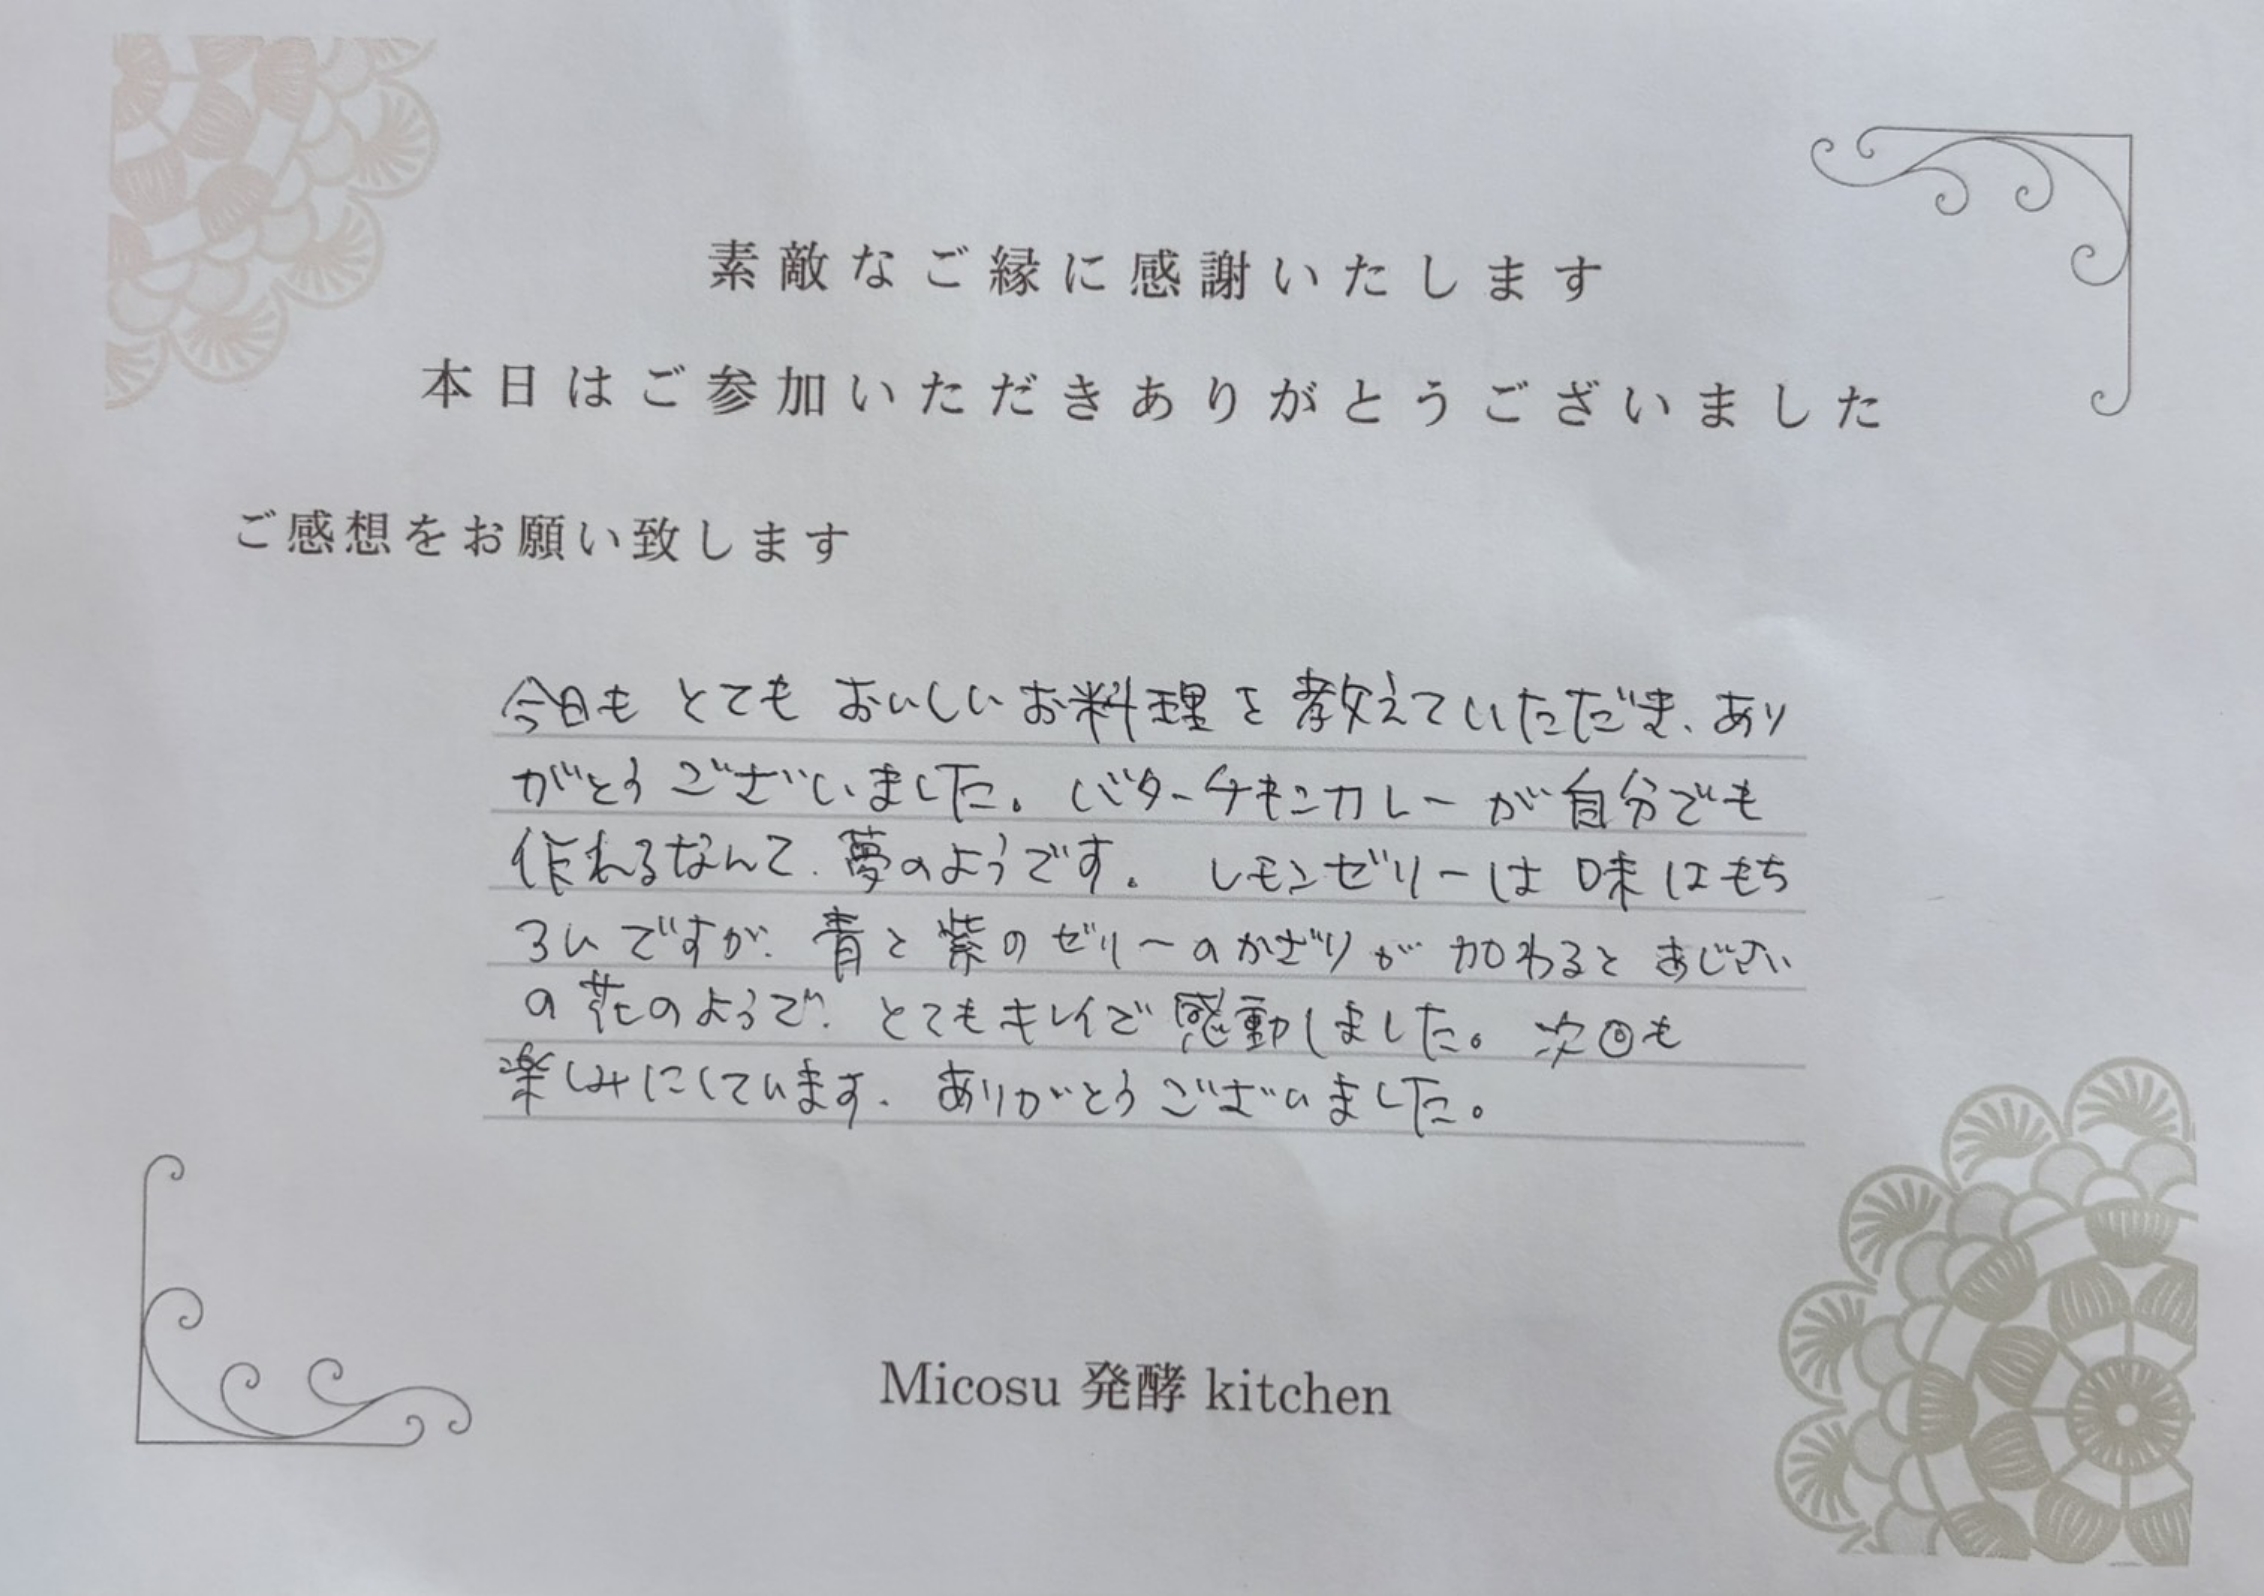 素敵なご縁に感謝いたします
本日はご参加いただきありがとうございました
ご感想をお願い致します
今日も とても おいしいお料理を 教えていただき、あり
がとう ございました。バターチキンカレーが自分でも
作れるなんて、夢のようです。 レモンゼリーは 味はもち
ろんですが、青と紫のゼリーのかざりが 加わると あじさい
の花のようで、とてもキレイで感動しました。次回も
楽しみにしています。ありがとうございました。
Micosu 発酵 kitchen